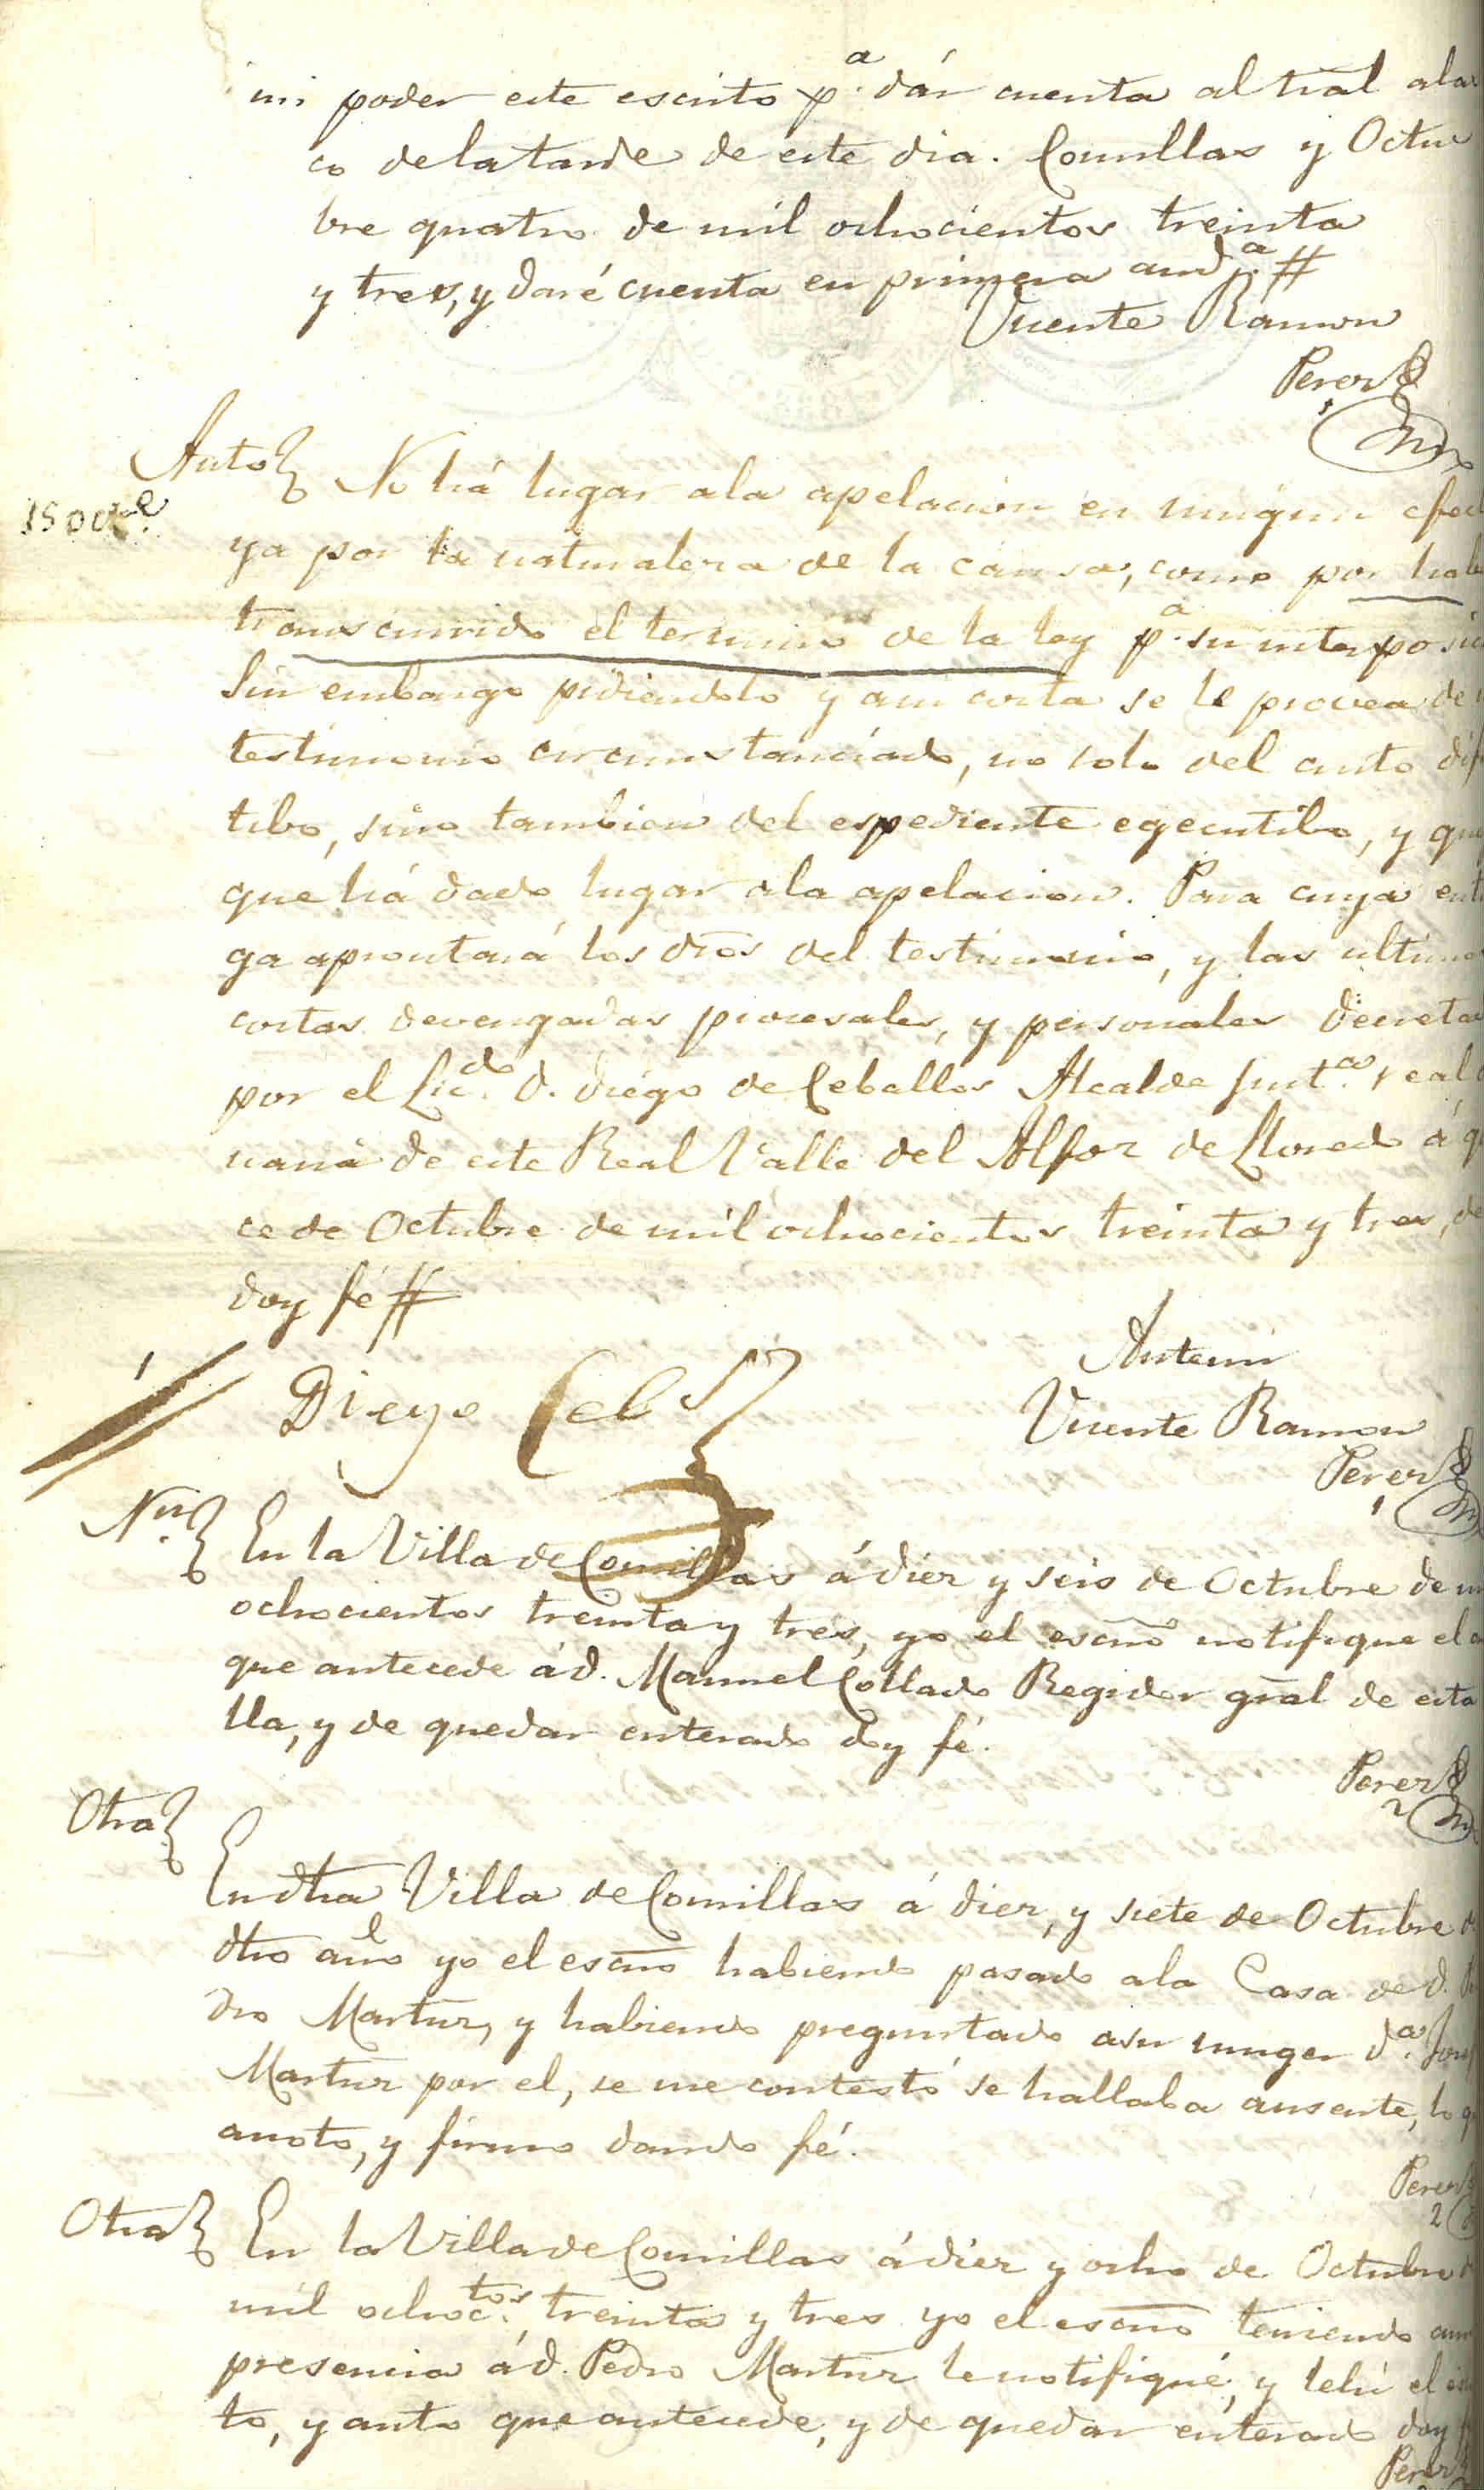 mi poder este escrito p.ª dár cuenta al tral ala
co delatarde de este dia. Comillas y Octu
bre quatro de mil ochocientos treinta
y tres, y daré cuenta en primera aud.ª #
Vicente Ramon
Perez
Auto
15 Oct.e
No há lugar ala apelacion en ningun efec
ya por la naturaleza de la causa, como por habe
transcurrido el termino de la ley p.ª su interposic
Sin embargo pidiendolo y asu costa se le provea de
testimonio circunstanciado, no solo del auto difi
tibo, sino tambien del espediente egecutibo, y que
que há dado lugar ala apelacion. Para cuya entr
ga aprontará los dros del testimonio, y las ultimas
costas devengadas procesales, y personales decretad
por el Lic.do D. Diego de Ceballos Alcalde Just.ª real
naria de este Real Valle del Alfoz de Lloredo á q
ce de Octubre de mil ochocientos treinta y tres, de
doy fé #
Diego Ceb.s
Antemi
Vicente Ramon
Perez
Nn.
En la Villa de Comillas á diez y seis de Octubre de m
ochocientos treinta y tres, yo el escno notifique el a
que antecede á d. Manuel Collado Regidor gral de esta
lla, y de quedar enterado doy fé.
Perez
Otra
En dha Villa de Comillas á diez, y siete de Octubre d
dho año yo el escno habiendo pasado ala Casa de d. P
dro Martur, y habiendo preguntado asu muger d.ª Jos
Martur por el, se me contestó se hallaba ausente, lo q
anoto, y firmo dando fé.
Perez
Otra
En la Villa de Comillas á diez y ocho de Octubre d
mil ochoc.tos treinta y tres yo el escno teniendo ami
presencia á d. Pedro Martur le notifiqué, y lehi el es
to, y auto que antecede, y de quedar enterado doy f
Perez